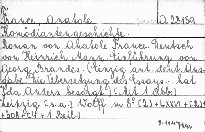 France, Anatole D 22159
Komödiantengeschichte.
Roman von Anatole France. Deutsch
von Heinrich Mann. Einführung von
Georg Brandes. (Einzig aut. deut. Aus-
gabe. Die Uebersetzung des Essays hat
Ida Anders besorgt) (Mit 1 Abb.)
Leipzig (s.a.) Wolff in 8° (2)+LXXVI+